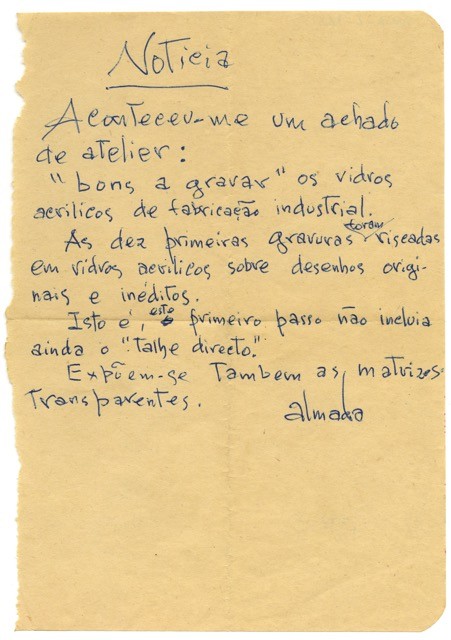 Noticia
Aconteceu-me um achado
de atelier:
"bons a gravar" os vidros
acrilicos de fabricação industrial.
As dez primeiras gravuras foram riscadas
em vidros acrilicos sobre desenhos origi-
nais e inéditos.
Isto é, este primeiro passo não incluia
ainda o "talhe directo."
Expõem-se Tambem as matrizes
transparentes.
almada